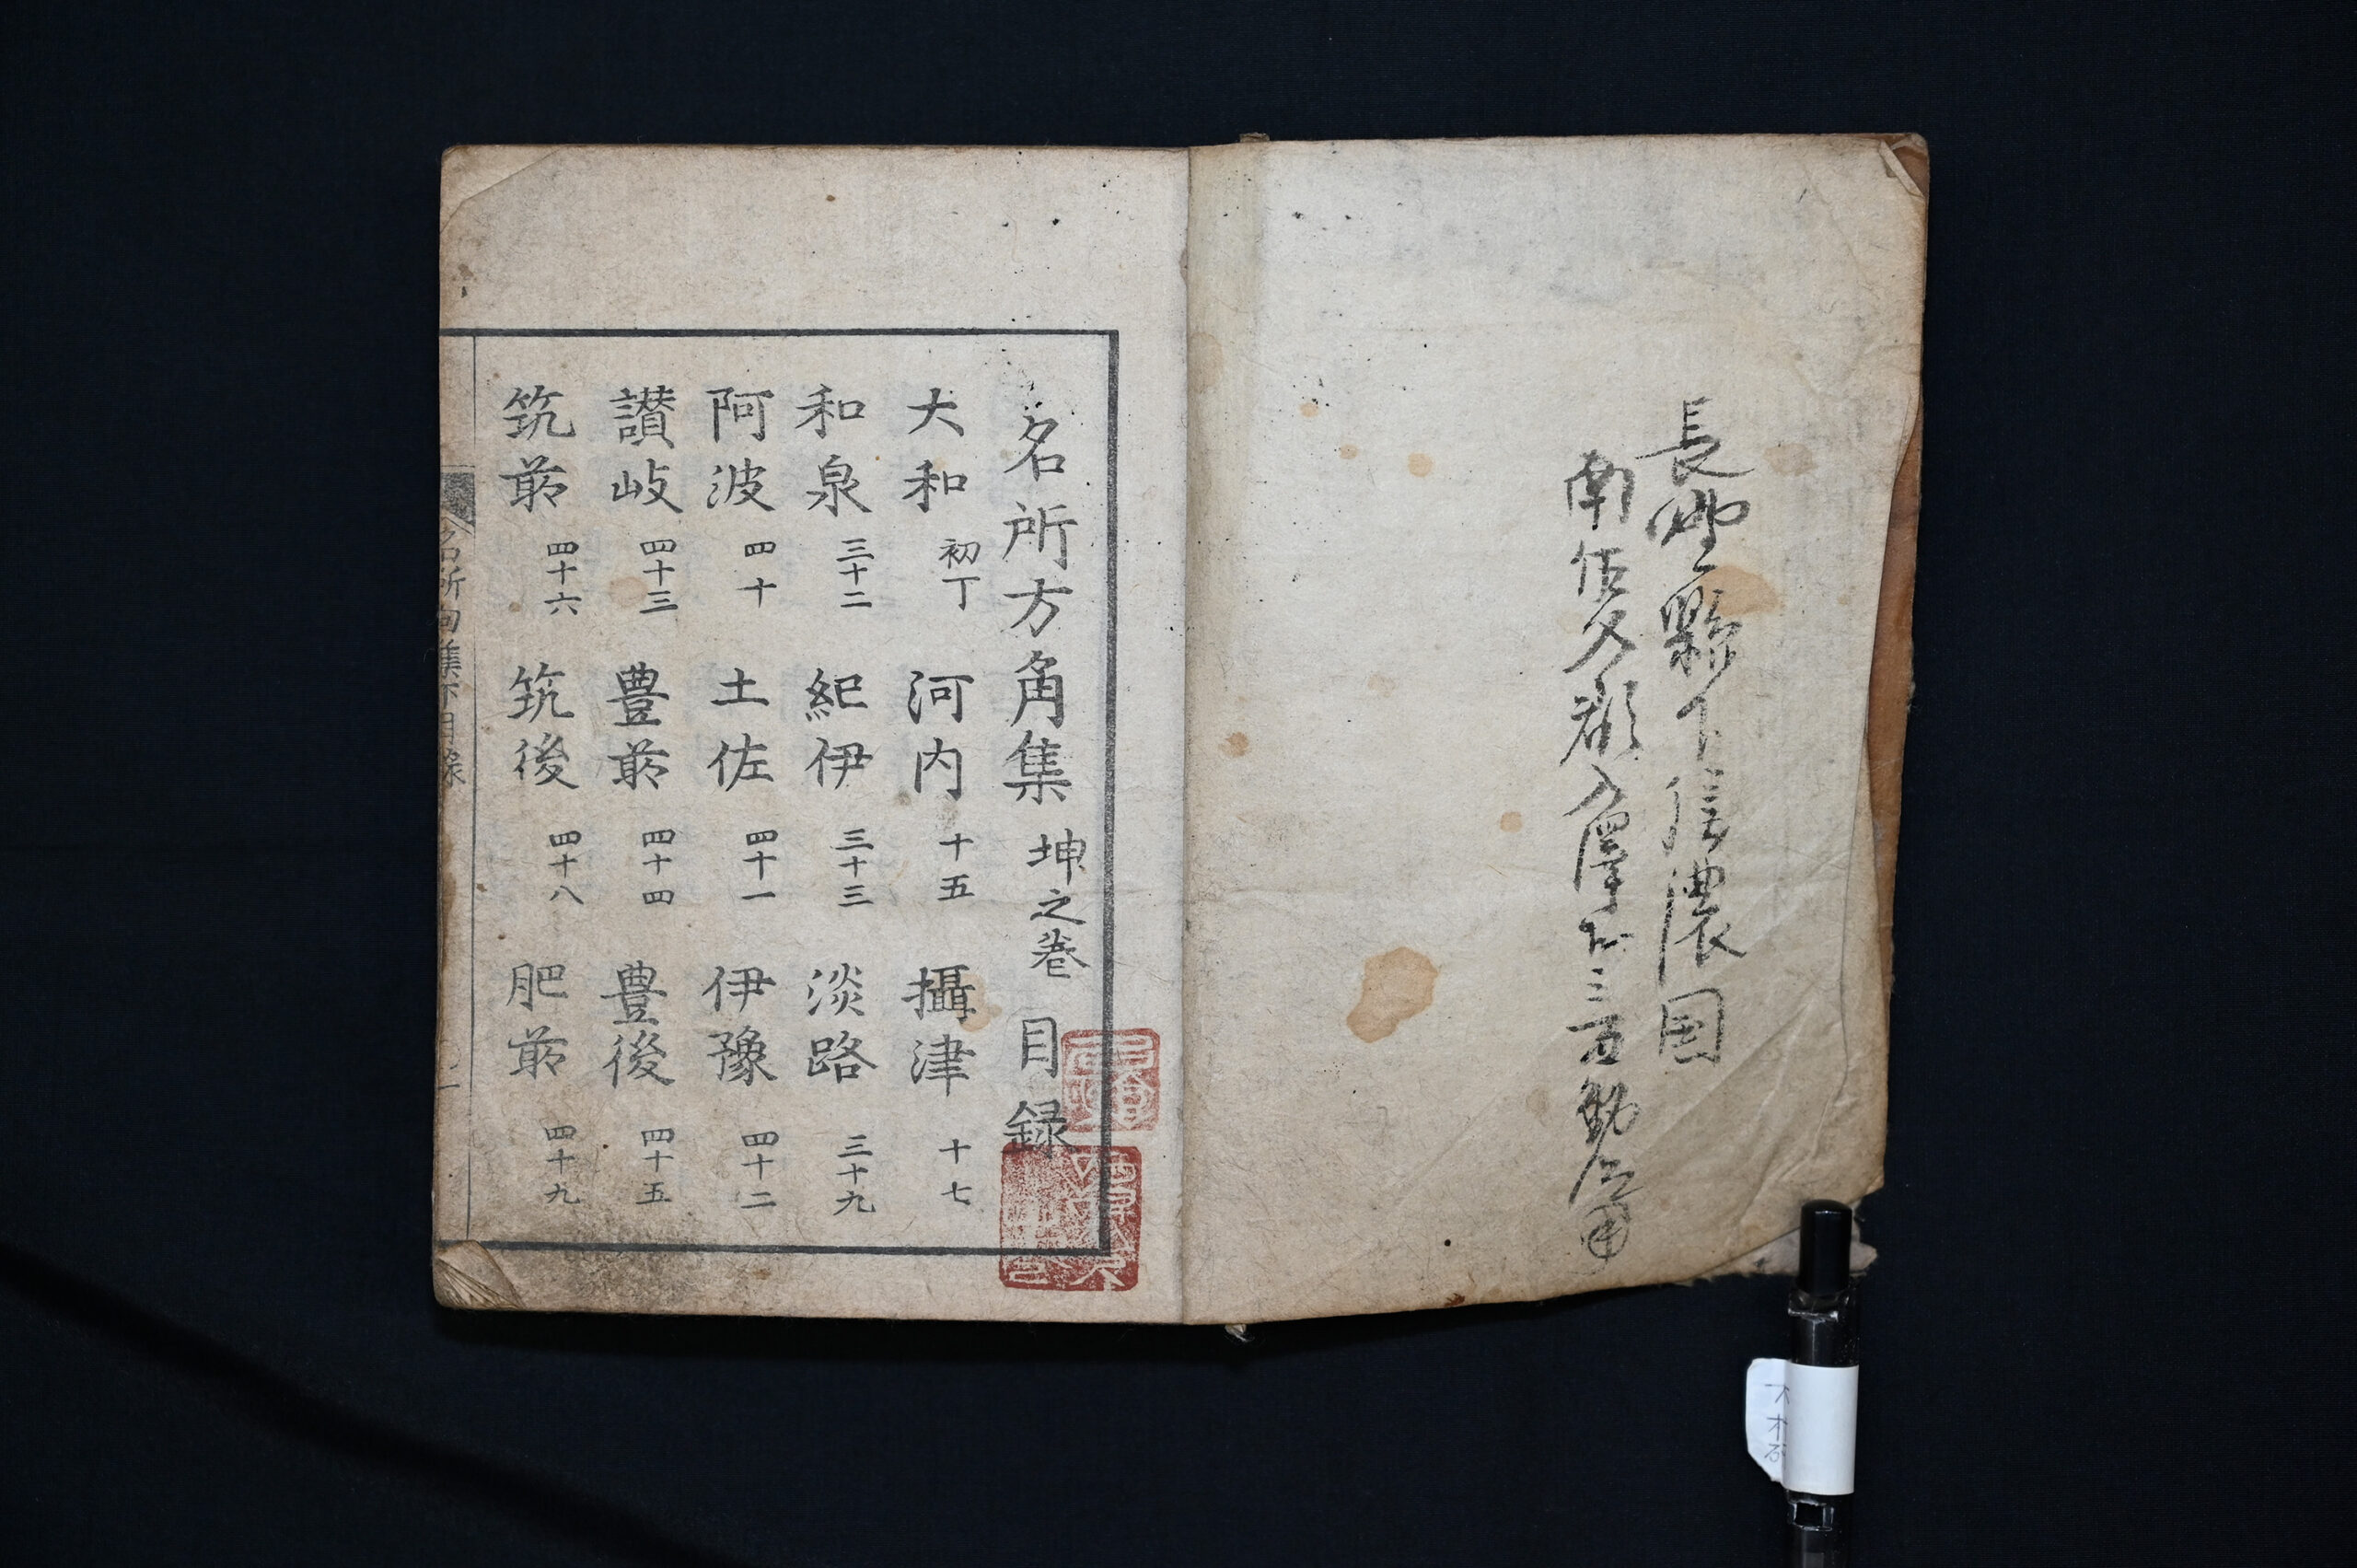 長野縣下信濃国
南佐久郡入澤村三百
名所方角集 坤之巻 目録
大和 初丁 河内 十五 攝津 十七
和泉 三十二 紀伊 三十三 淡路 三十九
阿波 四十 土佐 四十一 伊豫 四十二
讃岐 四十三 豊前 四十四 豊後 四十五
筑前 四十六 筑後 四十八 肥前 四十九